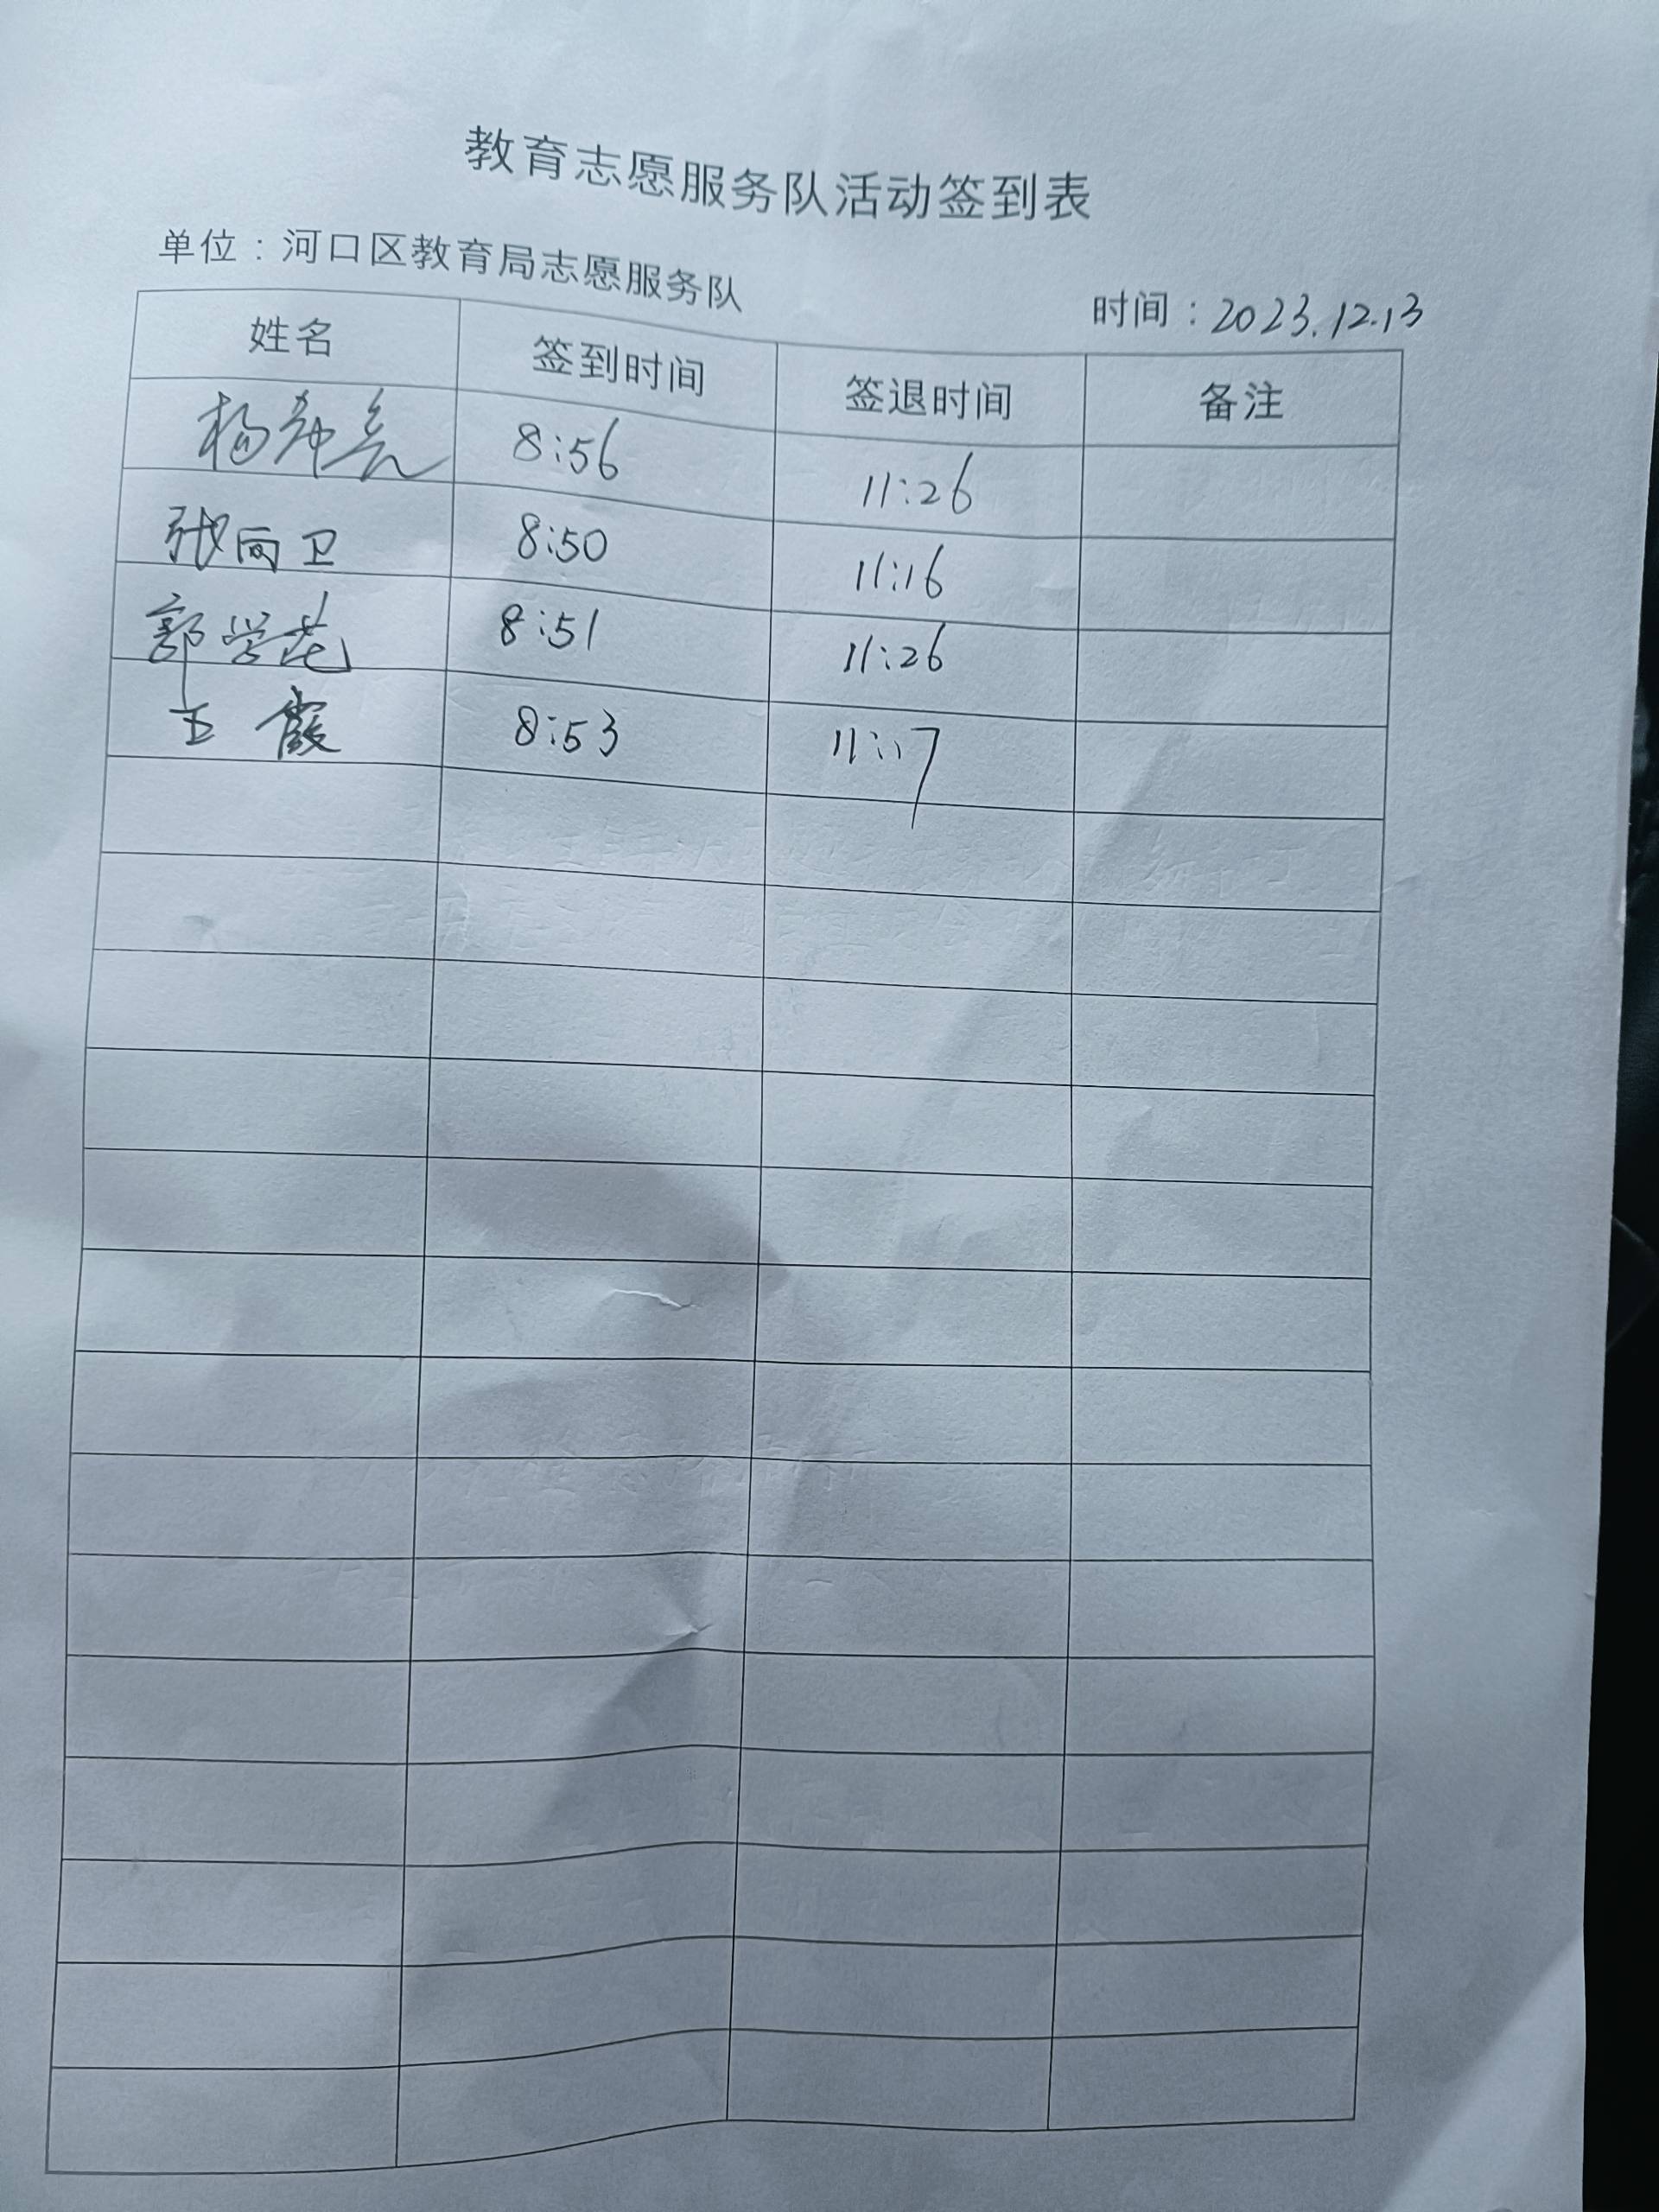 教育志愿服务队活动签到表
单位：河口区教育局志愿服务队
时间：2023.12.13
姓名 签到时间 签退时间 备注
杨 8:56 11:26
张向卫 8:50 11:16
郭学芘 8:51 11:26
王霞 8:53 11:17